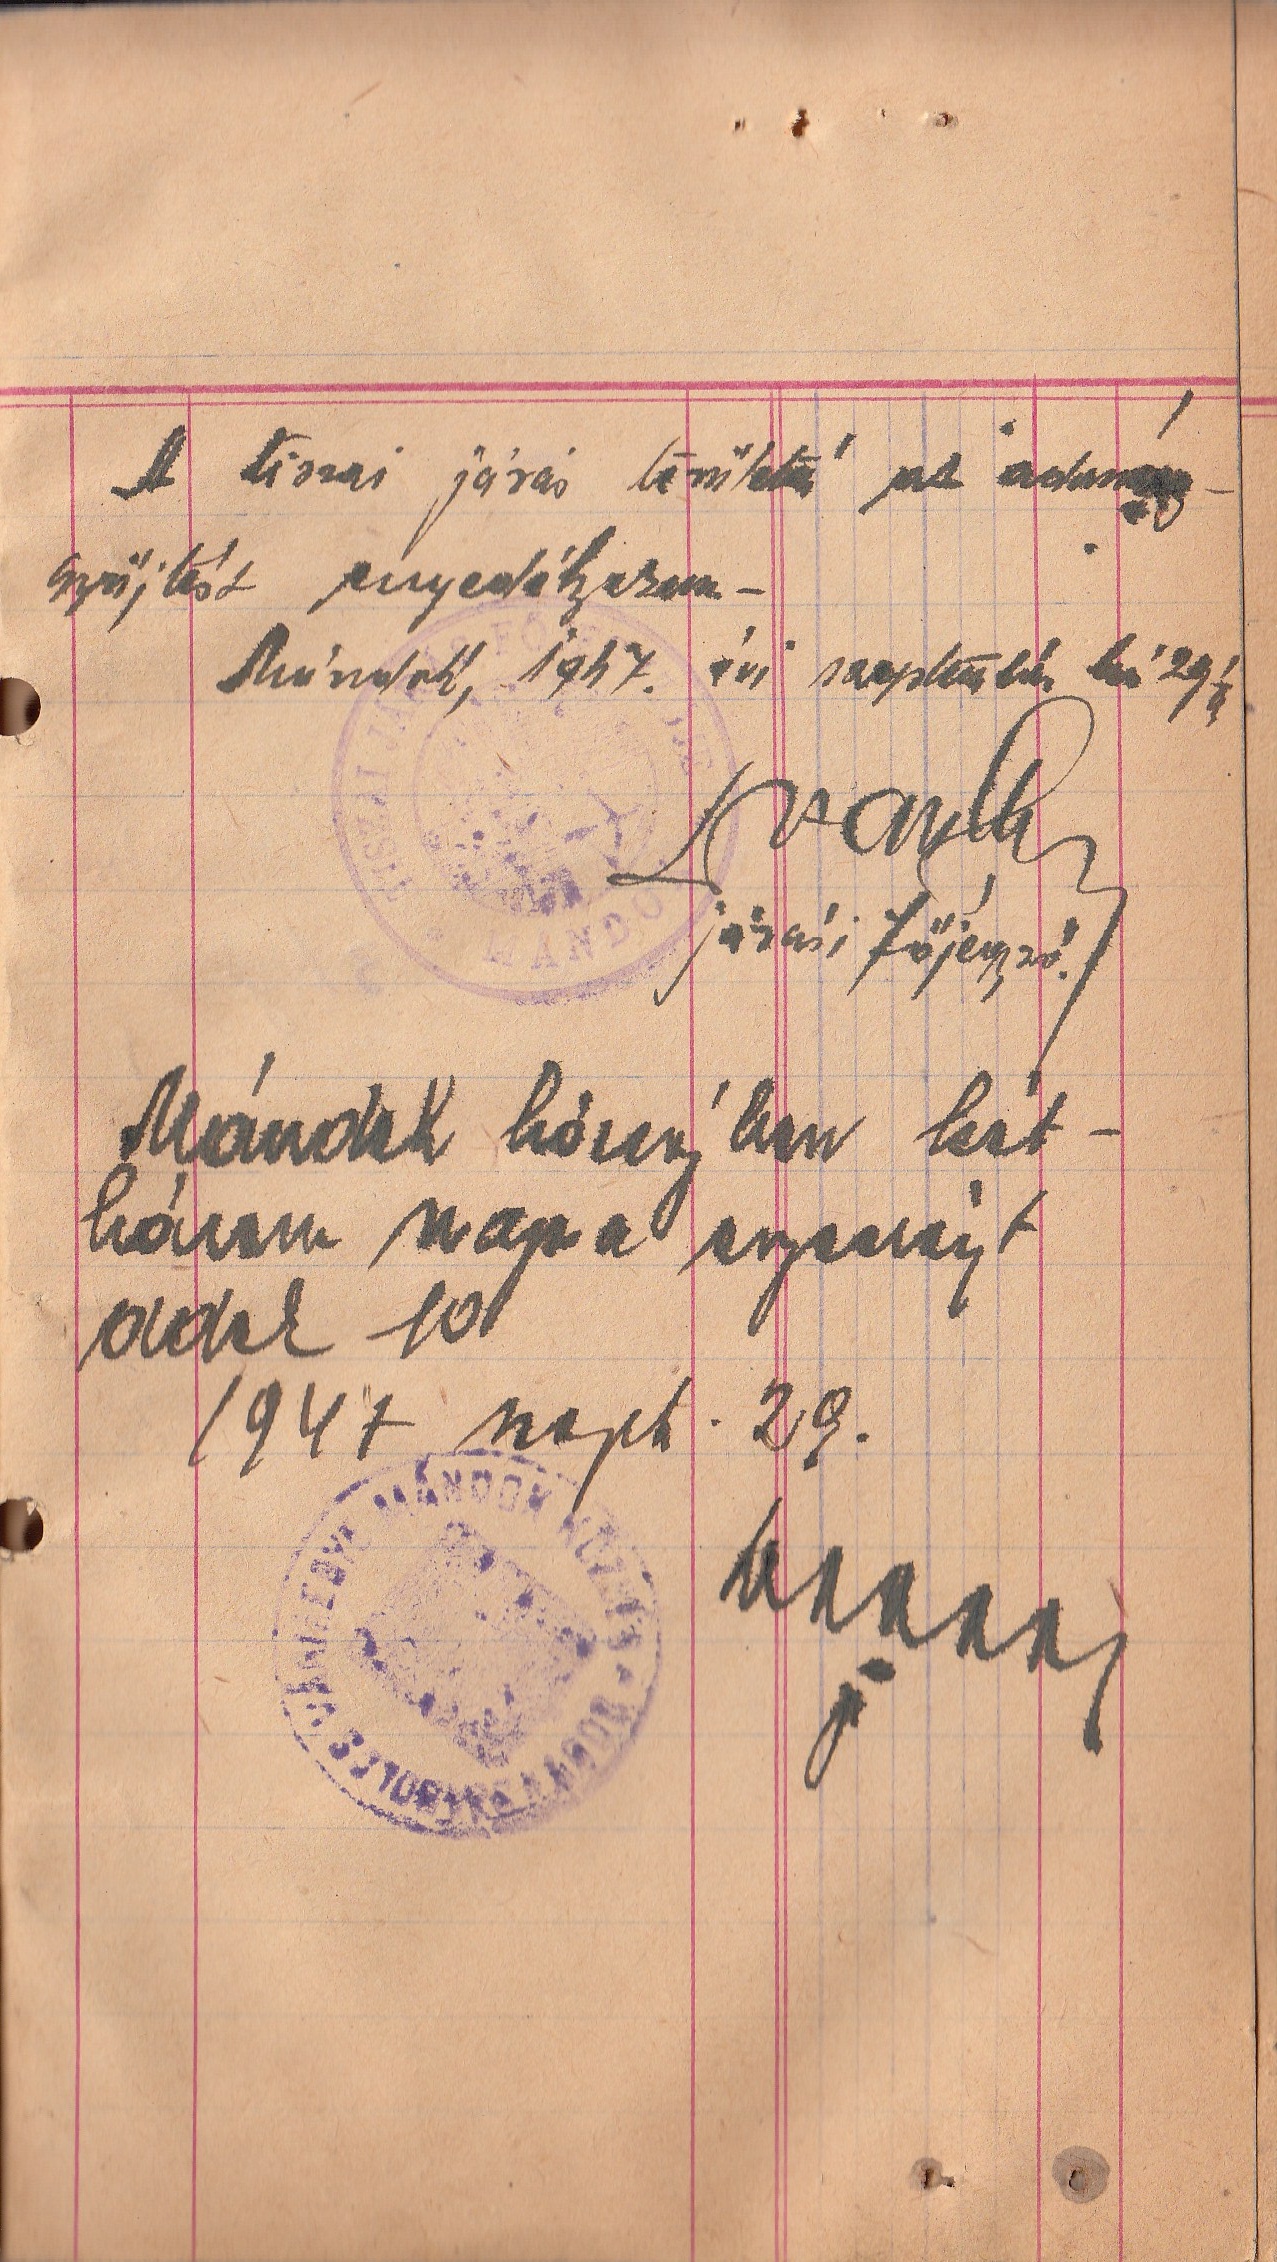 A tiszai járás területén az adomány-
gyűjtést engedélyezem –
Mándok, 1947. évi szeptember hó 29 én
járási főjegyző.
TISZAI JÁRÁS FŐJEGYZŐJE
MÁNDOK
Mándok községben két-
három napra engedélyt
adok
1947 szept. 29.
MÁNDOK KÖZSÉG
SZABOLCS VÁRMEGYE